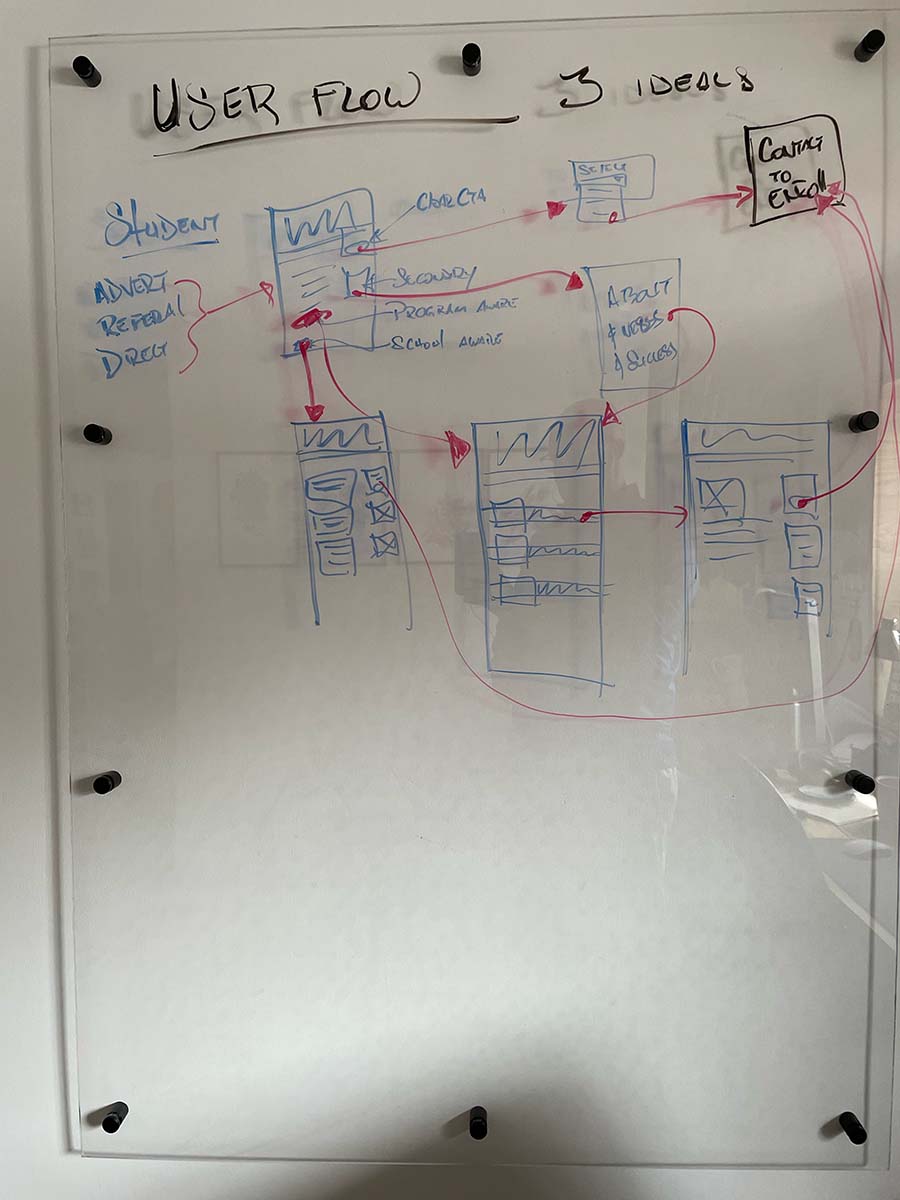 USER FLOW 3 IDEALS
STUDENT
ADVERT
REFERAL
DIRECT
CLEAR CTA
SECONDRY
PROGRAM AWARE
SCHOOL AWARE
CONTACT
TO
ENROLL
ABOUT
&
& SUCCESS